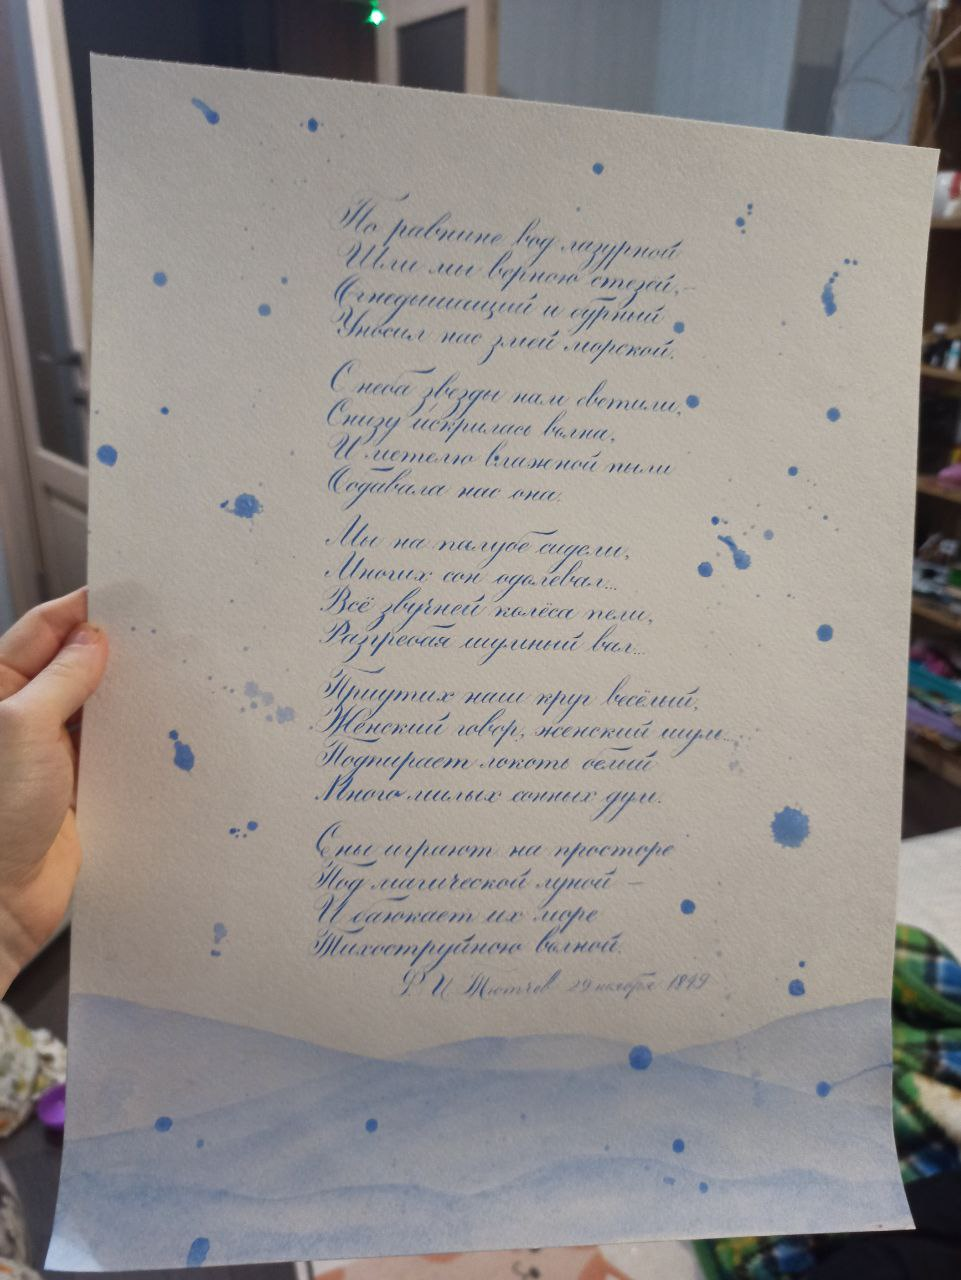 По равнине вод лазурной
Шли мы верною стезёй,—
Огнедышащий и бурный
Уносил нас змей морской.
С неба звезды нам светили,
Снизу искрилась волна,
И метелю влажной пыли
Обдавала нас она.
Мы на палубе сидели,
Многих сон одолевал...
Всё звучней колёса пели,
Разгребая шумный вал...
Приутих наш круг весёлый,
Женский говор, женский шум...
Подпирает локоть белый
Много милых сонных дум.
Сны играют на просторе
Под магической луной —
И баюкает их море
Тихоструйною волной.
Ф. И. Тютчев 29 ноября 1849